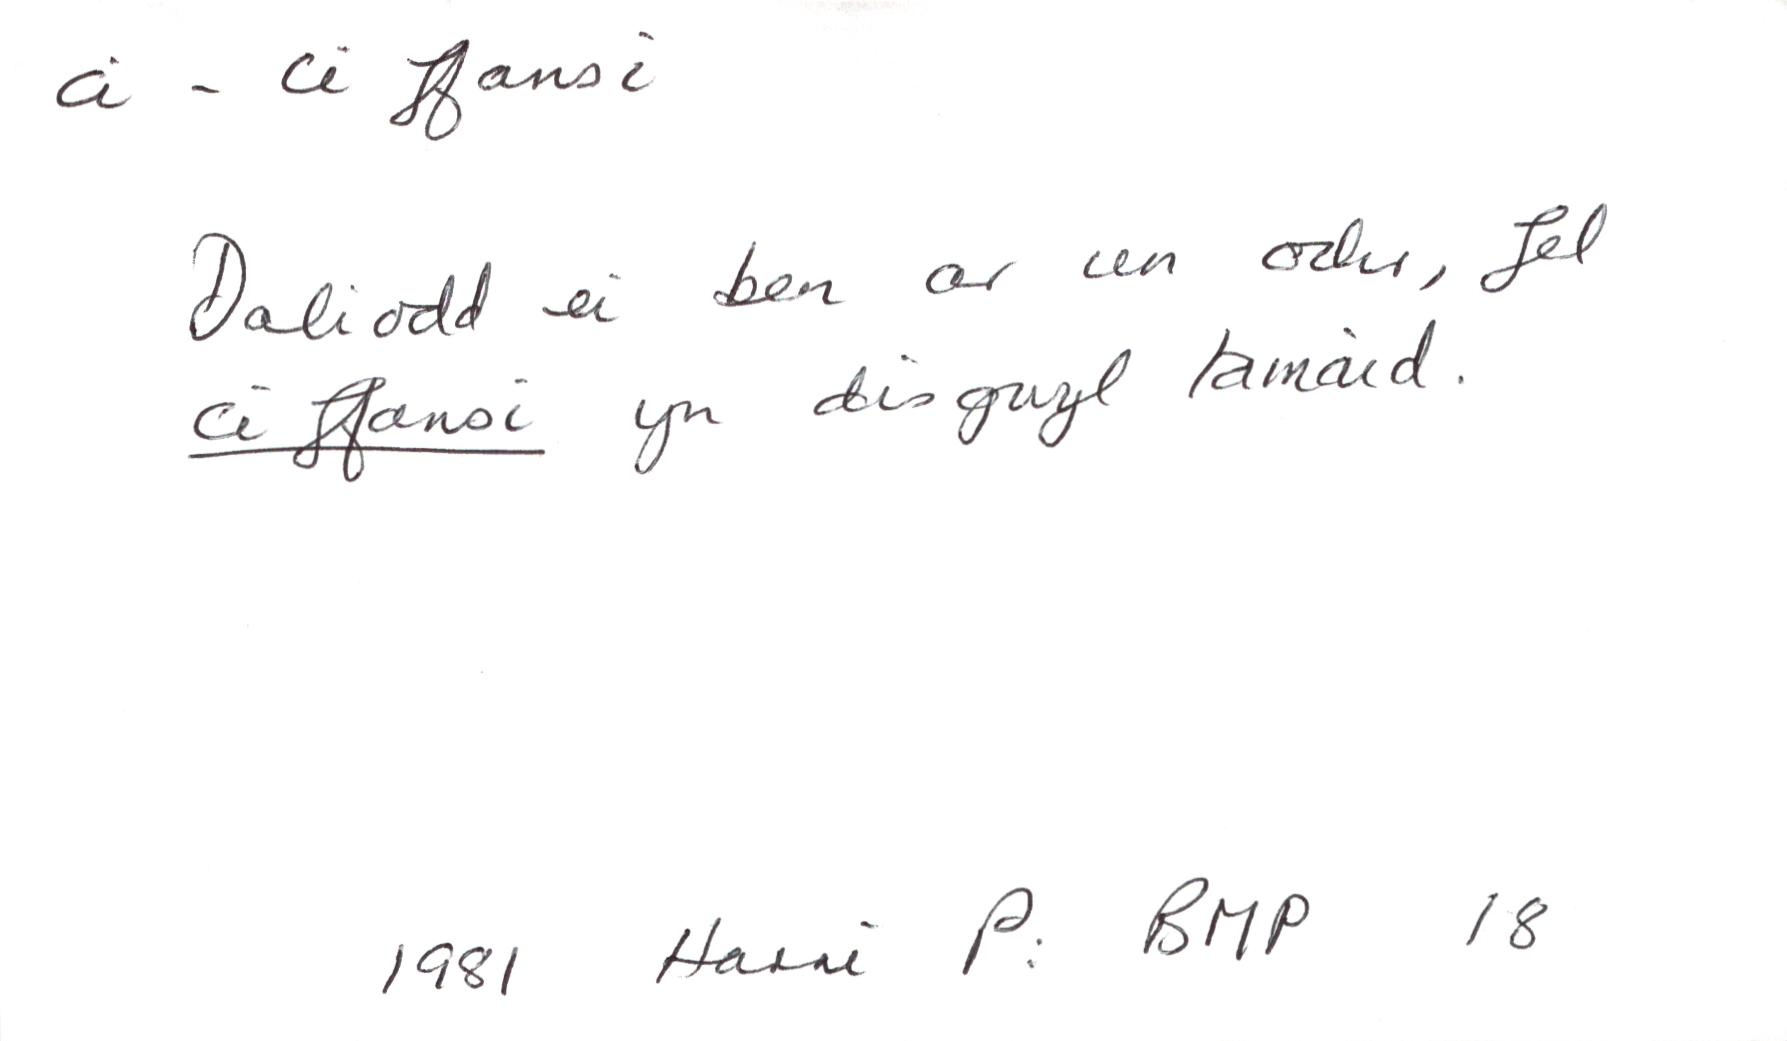 ci - ci ffansi
Daliodd ei ben ar un ochr, fel
ci ffansi yn disgwyl tamaid.
1981 Harri P: BMP 18